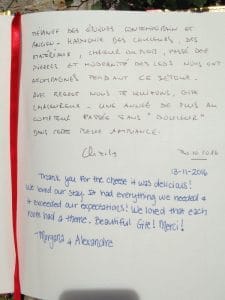 MÉLANGE DES ÉPOQUES CONTEMPORAIN ET
ANCIEN - HARMONIE DES COULEURS, DES
MATÉRIAUX, CHALEUR DU BOIS, PASSÉ DES
PIERRES ET MODERNITÉ DES LEDS NOUS ONT
ACCOMPAGNÉS PENDANT CE SÉJOUR.
AVEC REGRET NOUS TE QUITTONS, GITE
CHALEUREUX - UNE ANNÉE DE PLUS AU
COMPTEUR PASSÉE SANS "DOULEUR"
DANS CETTE BELLE AMBIANCE.
13-11-2016
Thank you for the cheese it was delicious!
We loved our stay. It had everything we needed &
it exceeded our expectations! We loved that each
room had a theme. Beautiful Gite! Merci!
- Morgana & Alexandre